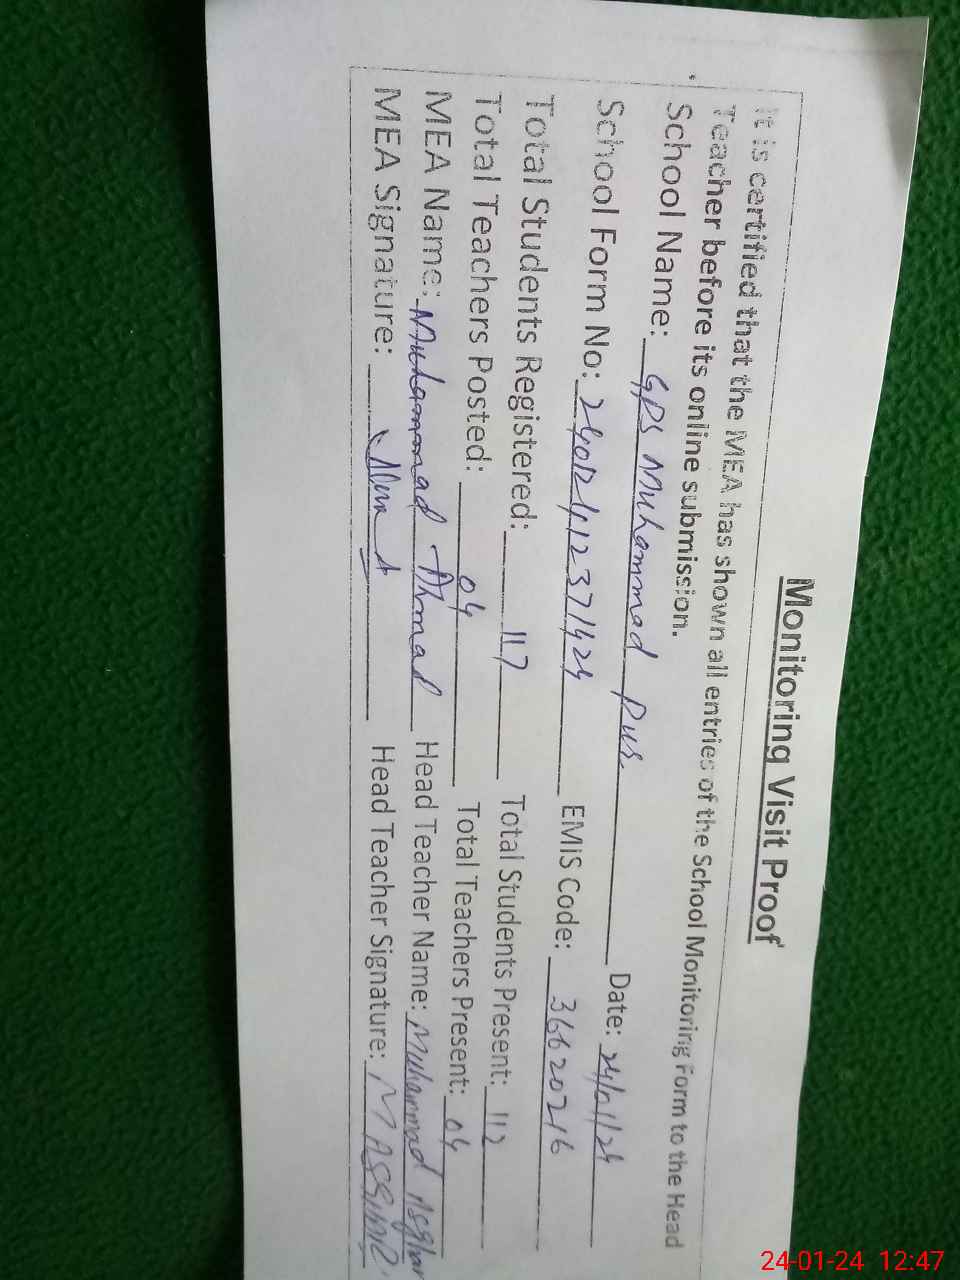 Monitoring Visit Proof
It is certified that the MEA has shown all entries of the School Monitoring Form to the Head
Teacher before its online submission.
School Name: GPS Muhammad Pur. Date: 24/01/24
School Form No: 240124112371424 EMIS Code: 36620216
Total Students Registered: 117 Total Students Present: 112
Total Teachers Posted: 04 Total Teachers Present: 04
MEA Name: Muhammad Ahmad Head Teacher Name: Muhammad Asghar
MEA Signature: Head Teacher Signature:
24-01-24 12:47